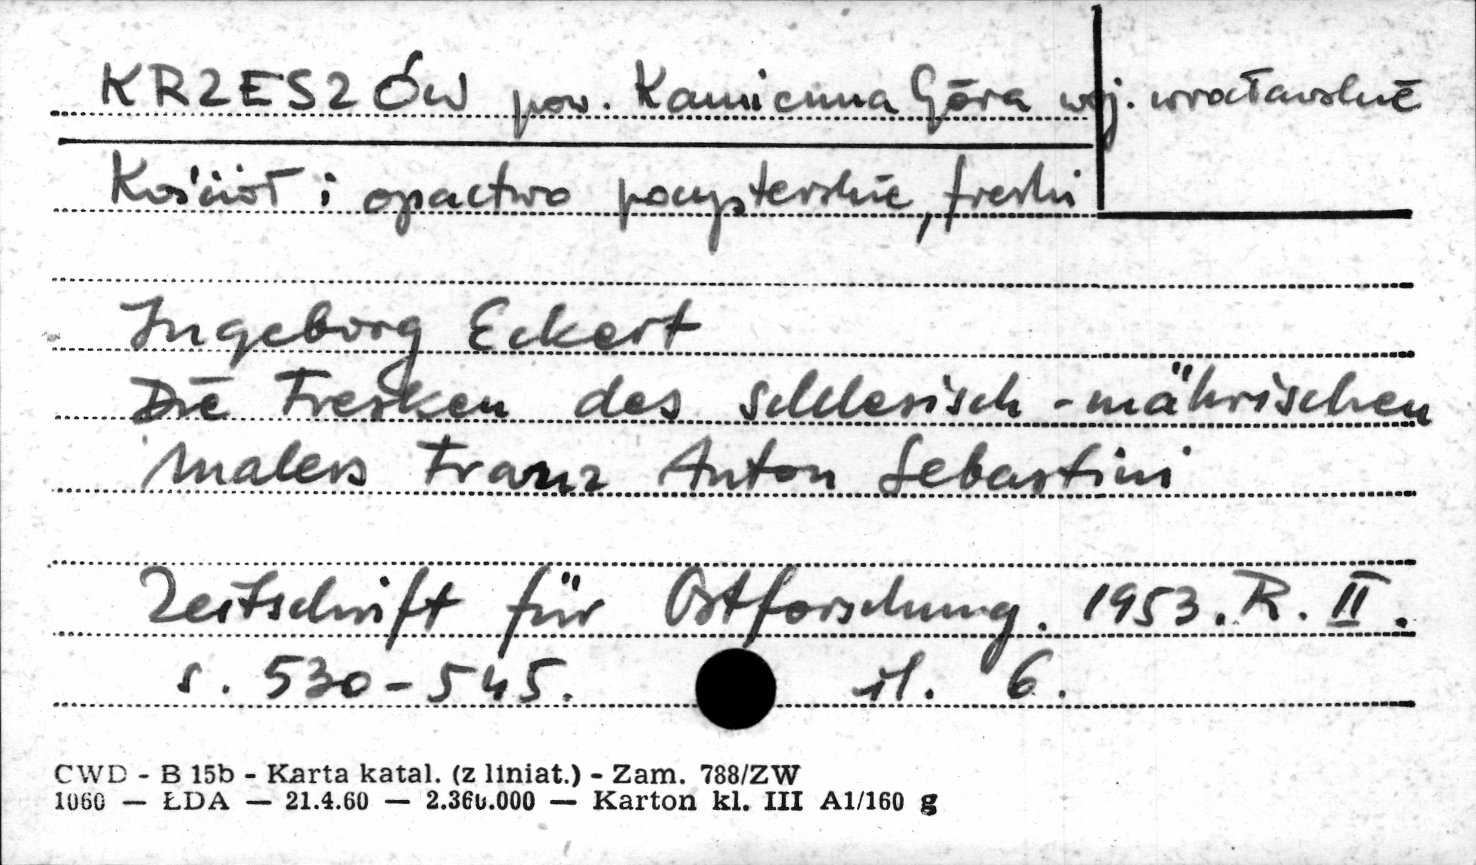 KRZESZÓW pow. Kamienna Góra woj. wrocławskie
Kościół i opactwo pocysterskie, freski
Ingeborg Eckert
Die Fresken des schlesisch-mährischen
Malers Franz Anton Sebastini
Zeitschrift für Ostforschung. 1953. R. II.
s. 530-545. il. 6.
CWD - B 15b - Karta katal. (z liniat.) - Zam. 788/ZW
1060 — ŁDA — 21.4.60 — 2.360.000 — Karton kl. III A1/160 g